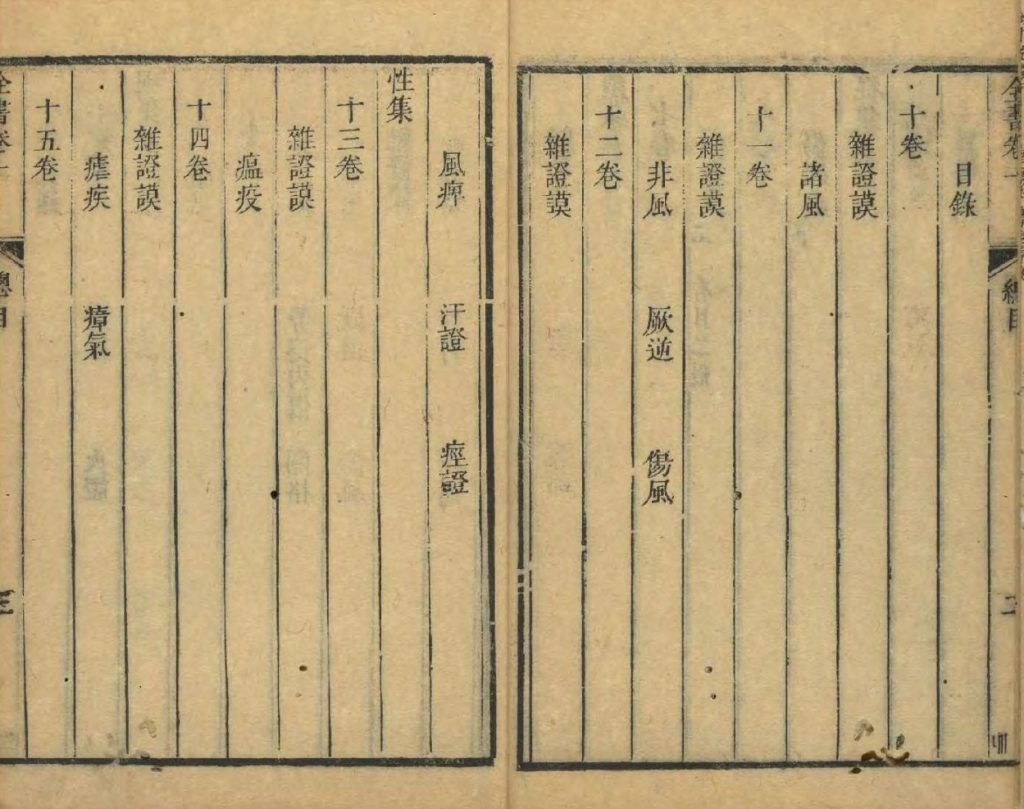 全書卷一
總目
二
目錄
十卷
雜證謨
諸風
十一卷
雜證謨
非風 厥逆 傷風
十二卷
雜證謨
風痺 汗證 痙證
性集
十三卷
雜證謨
瘟疫
十四卷
雜證謨
瘧疾 瘴氣
十五卷
全書卷一
總目
三